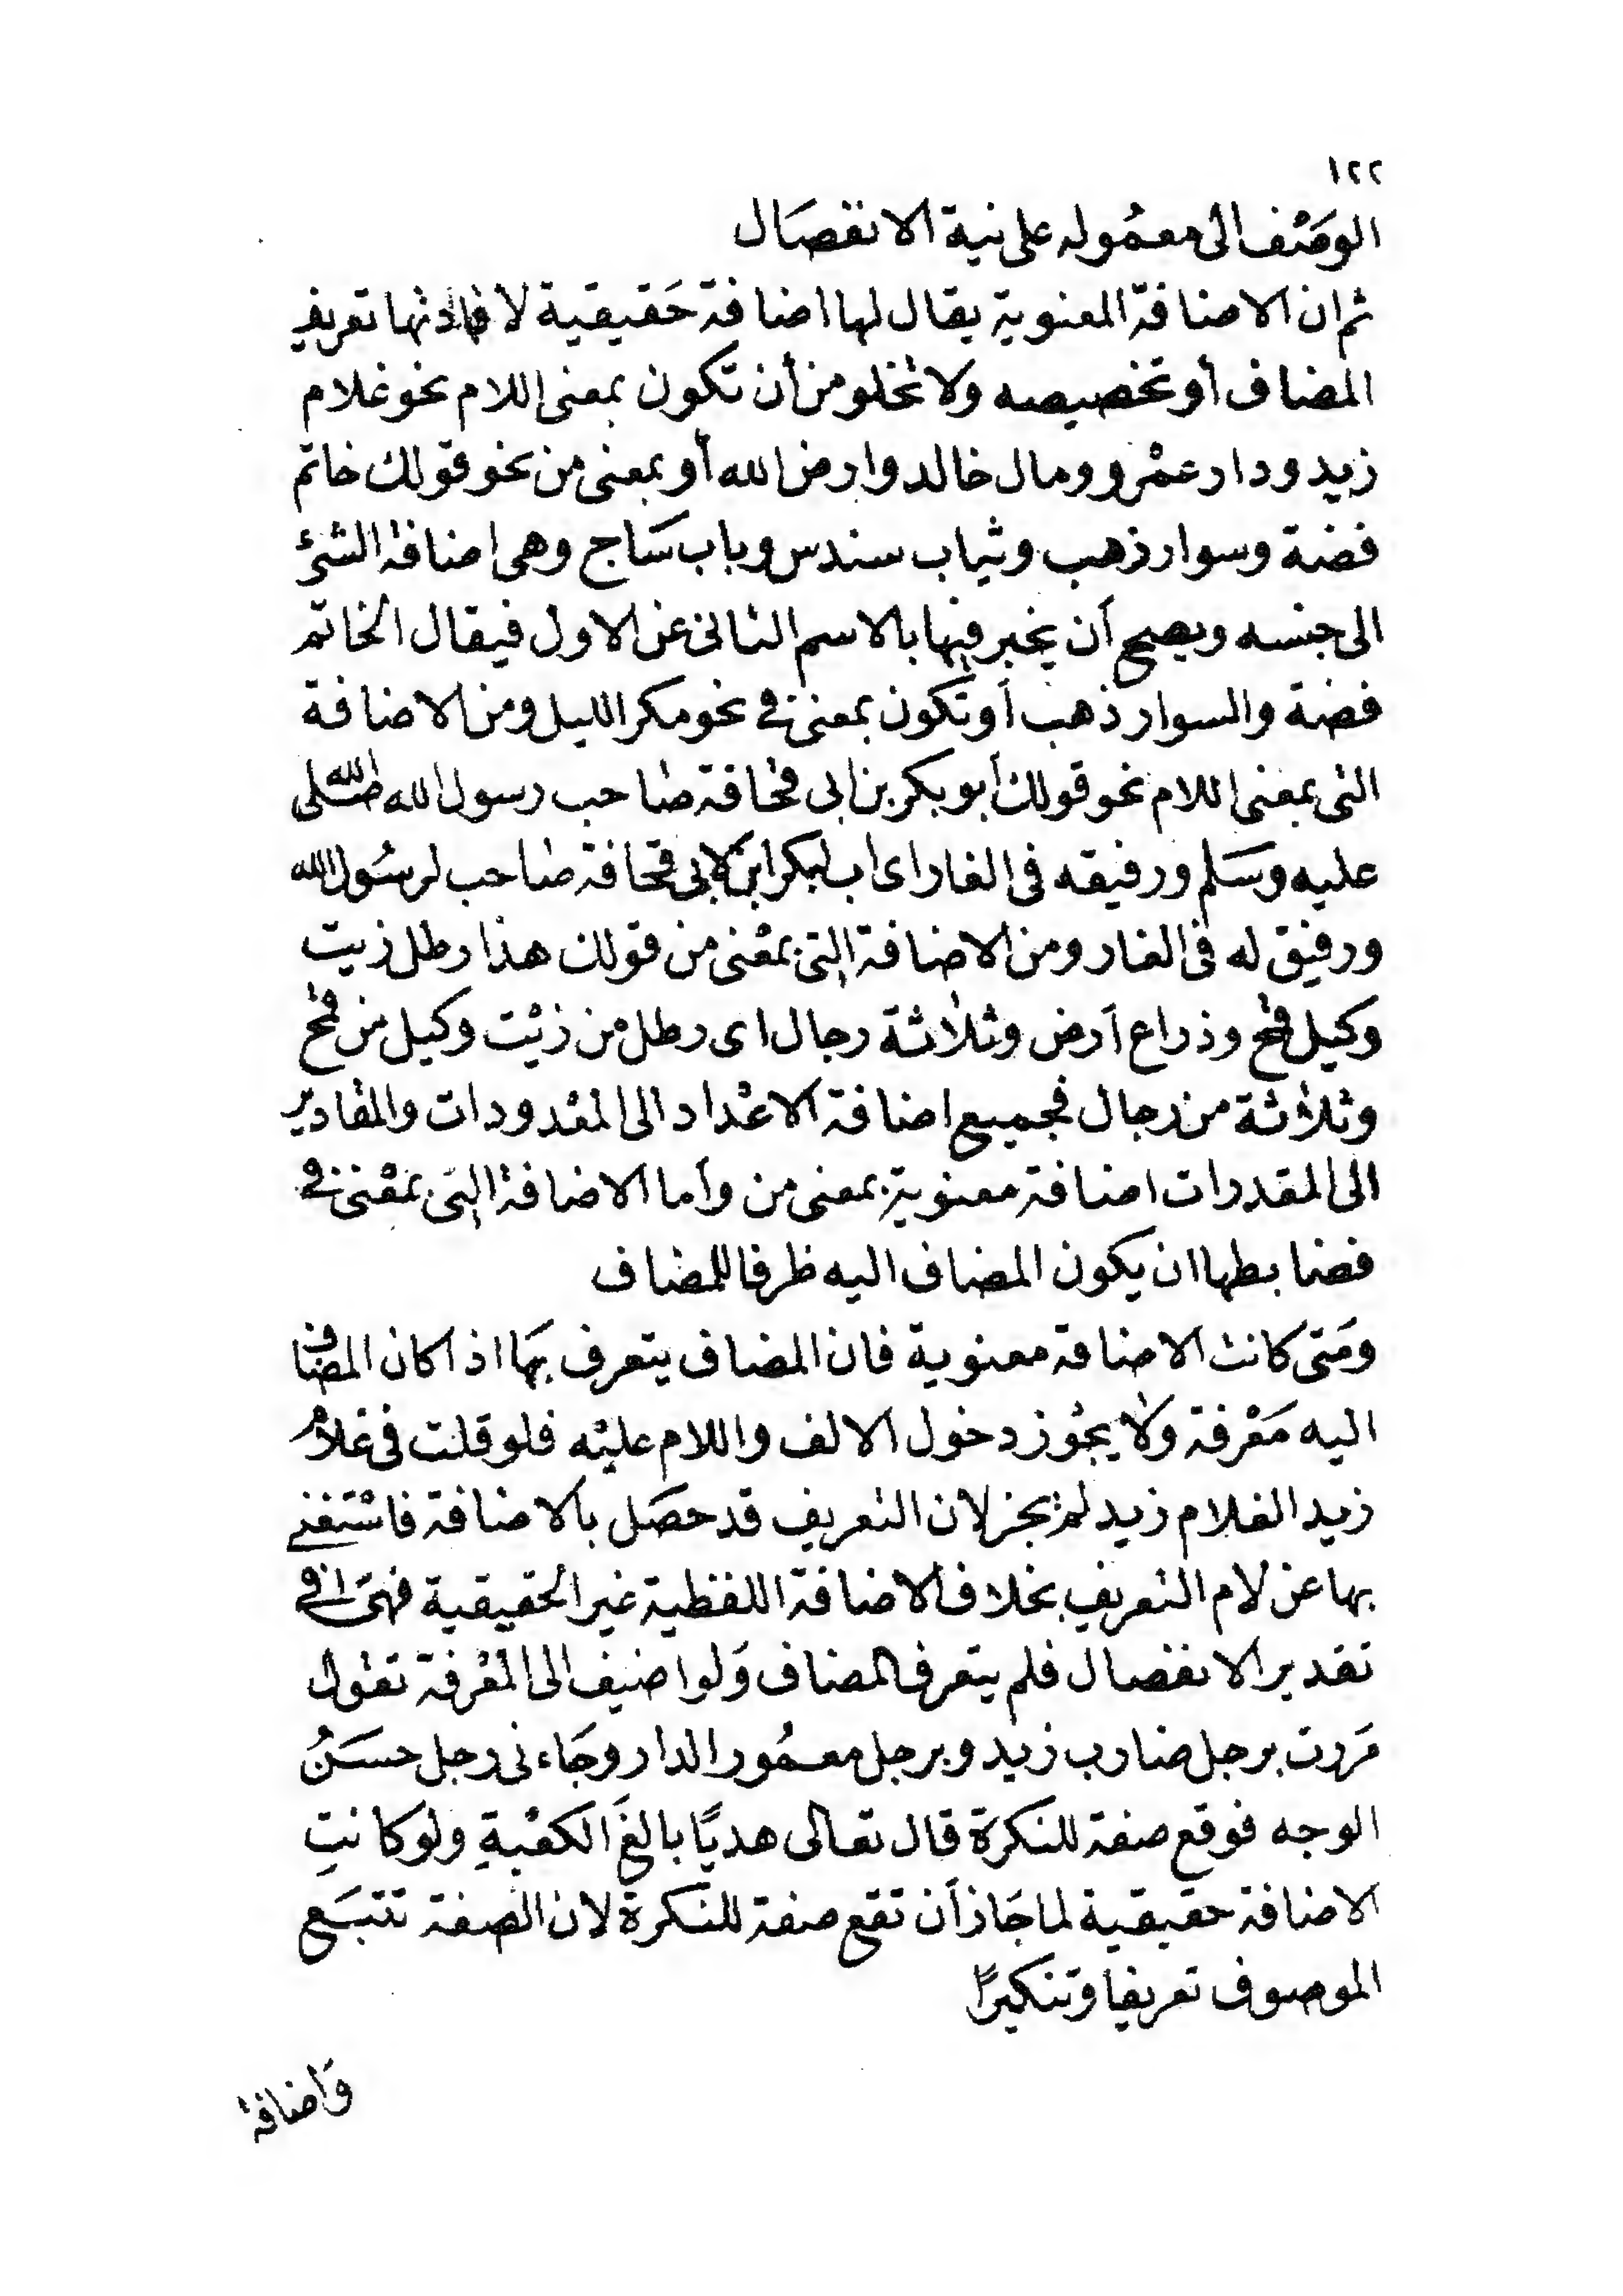 ١٢٢
الوصْف الى معمُوله على نية الانفصَال
ثم ان الاضافة المعنوية يقال لها اضافة حَقيقية لافادتها تعريف
المضاف أو تخصيصه ولا تخلو من أن تكون بمعنى اللام نحو غلام
زيد ودار عمْرو ومال خالد وارض الله أو بمعنى من نحو قولك خاتم
فضة وسوار ذهب وثياب سندس وباب سَاج وهى اضافة الشئ
الى جنسه ويصح أن يخبر فيها بالاسم الثانى عن الاول فيقال الخاتم
فضة والسوار ذهب أو تكون بمعنى فى نحو مكر الليل ومن الاضافة
التى بمعنى اللام نحو قولك أبو بكر بن أبى قحافة صاحب رسول الله صَلى الله
عليه وسَلم ورفيقه فى الغار اى اب لبكر ابن لابى قحافة صاحب لرسُول الله
ورفيق له فى الغار ومن الاضافة التى بمعْنى من قولك هذا رطل زيت
وكيل قمح وذراع أرض وثلاثة رجال اى رطل من زيْت وكيل من قمح
وثلاثة من رجال فجميع اضافة الاعْداد الى المعْدودات والمقادير
الى المقدرات اضافة معنوية بمعنى من وأما الاضافة التى بمعْنى فى
فضابطها ان يكون المضاف اليه ظرفا للمضاف
ومَتى كانت الاضافة معنوية فان المضاف يتعرف بهَا اذا كان المضاف
اليه مَعْرفة ولا يجُوز دخول الالف واللام عليْه فلو قلت فى غلام
زيد الغلام زيد لم يجز لان التعريف قد حصَل بالاضافة فاسْتغنى
بها عن لام التعريف بخلاف الاضافة اللفظية غير الحقيقية فهىَ فى
تقدير الانفصال فلم يتعرف المضاف وَلو اضيف الى المعْرفة تقول
مَررت برجل ضارب زيد وبرجل معمُور الدار وجَاءنى رجل حسَنُ
الوجه فوقع صفة للنكرَة قال تعالى هديًا بالغَ الكعْبةِ ولو كانتِ
الاضافة حقيقية لما جَاز أن تقع صفة للنكرة لان الصفة تتبَع
الموصوف تعريفا وتنكيرًا
وَاضافة